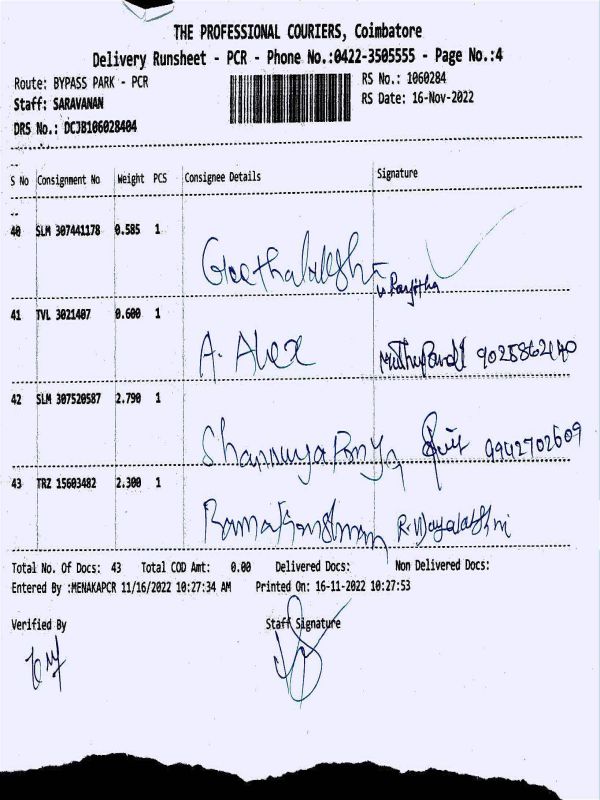 THE PROFESSIONAL COURIERS, Coimbatore
Delivery Runsheet - PCR - Phone No.:0422-3505555 - Page No.:4
Route: BYPASS PARK - PCR
RS No.: 1060284
Staff: SARAVANAN
RS Date: 16-Nov-2022
DRS No.: DCJB106028404
S No Consignment No Weight PCS Consignee Details Signature
40 SLM 307441178 0.585 1
41 TVL 3021407 0.600 1
A. Alex
42 SLM 307520587 2.790 1
9942702609
43 TRZ 15603482 2.300 1
Total No. Of Docs: 43 Total COD Amt: 0.00 Delivered Docs: Non Delivered Docs:
Entered By :MENAKAPCR 11/16/2022 10:27:34 AM Printed On: 16-11-2022 10:27:53
Verified By Staff Signature